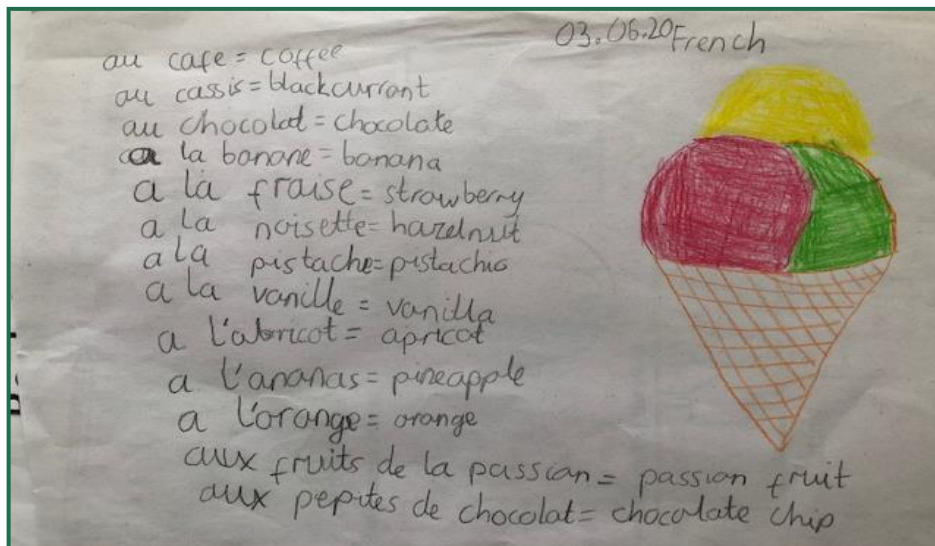 03.06.20 French
au cafe = coffee
au cassis = blackcurrant
au chocolat = chocolate
a la banane = banana
a la fraise = strawberry
a la noisette = hazelnut
a la pistache = pistachio
a la vanille = vanilla
a l'abricot = apricot
a l'ananas = pineapple
a l'orange = orange
aux fruits de la passion = passion fruit
aux pepites de chocolat = chocolate chip